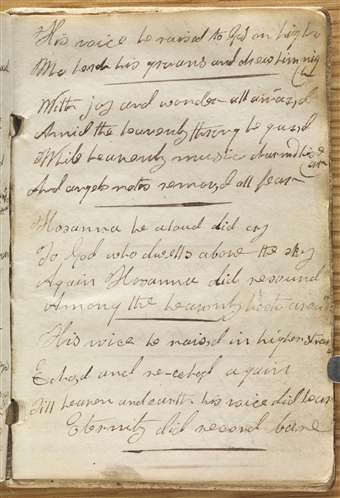 His voice he raised to God on high
He herd his groans and drew him nigh
With joy and wonder all amazd
Amid the heavenly throng he gazd
While heavenly music charmd his ear
And angels notes removd all fear
Hosanna he aloud did cry
To God who dwells above the sky
Again Hosanna did resound
Among the heavenly hosts around
His voice he raised in higher strain
Echoed and re-echod again
Till heaven and earth his voice did hear
Eternity did record bare